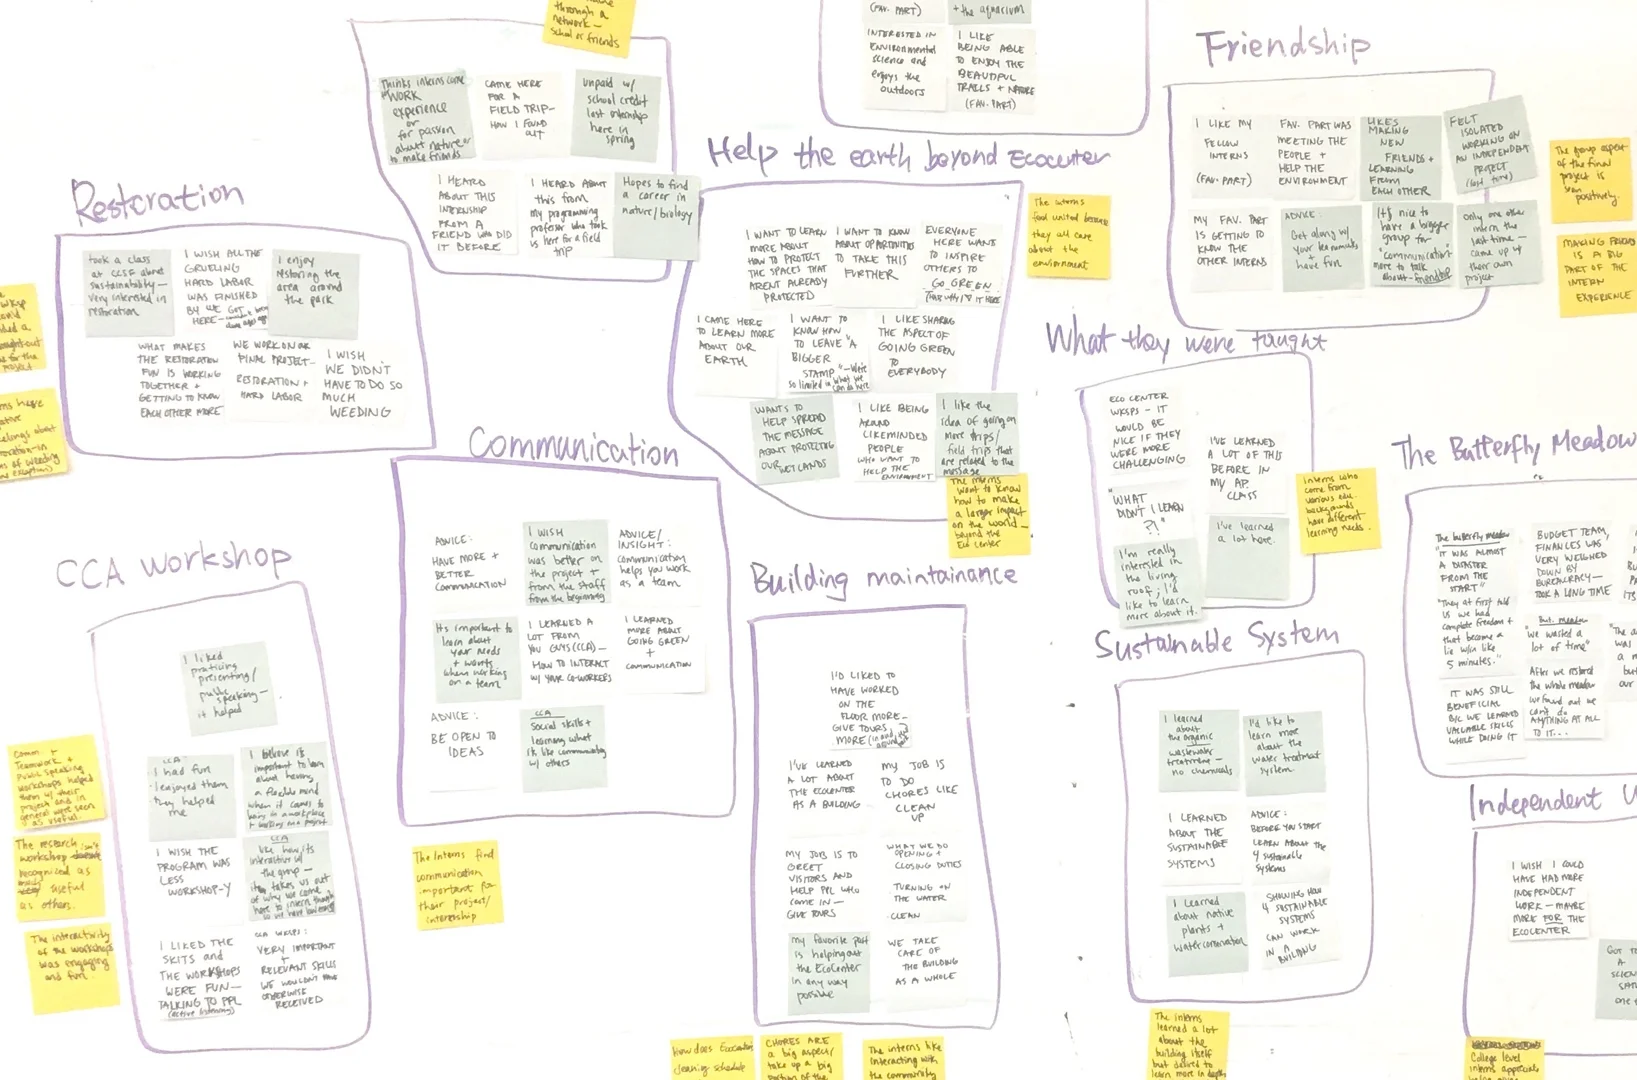 through a
network—
school or friends
Thinks interns come
WORK
experience
or
for passion
about nature or
to make friends
CAME HERE
FOR A
FIELD TRIP—
HOW I FOUND
OUT
unpaid w/
school credit
last internship
here in
spring
I HEARD
ABOUT THIS
INTERNSHIP
FROM A
FRIEND WHO DID
IT BEFORE
I HEARD ABOUT
this from
my programming
professor who took
us here for a field
trip
Hopes to find
a career in
nature/biology
(FAV. PART)
+ the aquarium
INTERESTED IN
Environmental
science and
enjoys the
outdoors
I LIKE
BEING ABLE
TO ENJOY THE
BEAUTIFUL
TRAILS + NATURE
(FAV. PART)
Friendship
I LIKE MY
FELLOW
INTERNS
(FAV. PART)
FAV. PART WAS
MEETING THE
PEOPLE +
HELP THE
ENVIRONMENT
LIKES
MAKING
NEW
FRIENDS +
LEARNING
FROM
EACH OTHER
FELT
ISOLATED
WORKING ON
AN INDEPENDENT
PROJECT
(last time)
MY FAV. PART
IS GETTING TO
KNOW THE
OTHER INTERNS
ADVICE:
Get along w/
your teammates
+
have fun
It's nice to
have a bigger
group for
"communication"
more to talk
about—friendship
only one other
intern the
last time—
came up w/
their own
project
The group aspect
of the final
project is
seen
positively.
MAKING FRIENDS
IS A BIG
PART OF THE
INTERN
EXPERIENCE
Restoration
took a class
at CCSF about
sustainability—
very interested in
restoration
I WISH ALL THE
GRUELING
HARD LABOR
WAS FINISHED
BY WE GOT
HERE—
I enjoy
restoring the
area around
the park
WHAT MAKES
THE RESTORATION
FUN IS WORKING
TOGETHER +
GETTING TO KNOW
EACH OTHER MORE
WE WORK ON OUR
FINAL PROJECT—
RESTORATION +
HARD LABOR
I WISH
WE DIDN'T
HAVE TO DO SO
MUCH
WEEDING
Help the earth beyond Ecocenter
I WANT TO LEARN
MORE ABOUT
HOW TO PROTECT
THE SPACES THAT
ARENT ALREADY
PROTECTED
I WANT TO KNOW
ABOUT OPPORTUNITIES
TO TAKE THIS
FURTHER
EVERYONE
HERE WANT
TO INSPIRE
OTHERS TO
GO GREEN
(THAT WHY I ♥ IT HERE
I CAME HERE
TO LEARN MORE
ABOUT OUR
EARTH
I WANT TO
KNOW HOW
TO LEAVE "A
BIGGER
STAMP"—We're
so limited in what we
can do here
I LIKE SHARING
THE ASPECT OF
GOING GREEN
TO
EVERYBODY
WANTS TO
HELP SPREAD
THE MESSAGE
ABOUT PROTECTING
OUR WETLANDS
I LIKE BEING
AROUND
LIKEMINDED
PEOPLE
WHO WANT TO
HELP THE
ENVIRONMENT
I like the
idea of going on
more trips/
field trips that
are related to the
message
The interns
feel united because
they all care
about the
environment
The interns
want to know
how to make
a larger impact
on the world—
beyond the
Eco Center
What they were taught
ECO CENTER
WKSPS - IT
WOULD BE
NICE IF THEY
WERE MORE
CHALLENGING
I'VE LEARNED
A LOT OF THIS
BEFORE IN
MY AP.
CLASS
"WHAT
DIDN'T I LEARN
?!"
I'm really
interested in
the living
roof; I'd
like to learn
more about it.
I've learned
a lot here.
Interns who
come from
various edu.
backgrounds
have different
learning needs.
The Butterfly Meadow
The butterfly meadow
"IT WAS ALMOST
A DISASTER
FROM THE
START"
BUDGET TEAM,
FINANCES WAS
VERY WEIGHED
DOWN BY
BUREAUCRACY—
TOOK A LONG TIME
"They at first told
us we had
complete freedom +
that became a
lie w/in like
5 minutes."
But. meadow
"we wasted a
lot of time"
IT WAS STILL
BENEFICIAL
B/C WE LEARNED
VALUABLE SKILLS
WHILE DOING IT
After we restored
the whole meadow
we found out we
can't do
ANYTHING AT ALL
TO IT...
Communication
ADVICE:
HAVE MORE +
BETTER
COMMUNICATION
I WISH
communication
was better on
the project +
from the staff
from the beginning
ADVICE/
INSIGHT:
communication
helps you work
as a team
It's important to
learn about
your needs
+ wants
when working
on a team
I LEARNED A
LOT FROM
YOU GUYS (CCA)—
HOW TO INTERACT
W/ YOUR CO-WORKERS
I LEARNED
MORE ABOUT
GOING GREEN
+
COMMUNICATION
ADVICE:
BE OPEN TO
IDEAS
CCA
Social skills +
learning what
it's like communicating
w/ others
The Interns find
communication
important for
their project/
internship
CCA workshop
I liked
practicing
presenting/
public
speaking—
it helped
CCA
·I had fun
·I enjoyed them
·they helped
me
I believe it's
important to learn
about having
a flexible mind
when it comes to
being in a workplace
+ working on a project
I WISH THE
PROGRAM WAS
LESS
WORKSHOP-Y
CCA
like how its
interactive w/
the group—
I LIKED THE
SKITS and
THE WORKSHOPS
WERE FUN—
TALKING TO PPL
(active listening)
CCA WKSPS:
VERY IMPORTANT
+
RELEVANT SKILLS
WE WOULDN'T HAVE
OTHERWISE
RECEIVED
Comm +
Teamwork +
Public speaking
workshops helped
them w/ their
project and in
general were seen
as useful.
The research
workshop isn't
recognized as
useful
as others.
The interactivity
of the workshops
was engaging
and fun.
Building maintainance
I'D LIKED TO
HAVE WORKED
ON THE
FLOOR MORE—
GIVE TOURS
MORE
I'VE LEARNED
A LOT ABOUT
THE ECOCENTER
AS A BUILDING
MY JOB IS
TO DO
CHORES LIKE
CLEAN
UP
MY JOB IS TO
GREET
VISITORS AND
HELP PPL WHO
COME IN—
GIVE TOURS
WHAT WE DO
OPENING +
CLOSING DUTIES
TURNING ON
THE WATER
CLEAN
my favorite part
is helping out
the EcoCenter
in any way
possible
WE TAKE
CARE OF
THE BUILDING
AS A WHOLE
How does Ecocenter
cleaning schedule
CHORES ARE
a big aspect/
take up a big
portion of the
The interns like
interacting with
the community
Sustainable System
I learned
about
the organic
wastewater
treatment—
no chemicals
I'd like to
learn more
about the
water treatmnt
system.
I LEARNED
ABOUT THE
SUSTAINABLE
SYSTEMS
ADVICE:
BEFORE YOU START
LEARN ABOUT THE
4 sustainable
systems
I learned
about native
plants +
water conservation
SHOWING HOW
4 SUSTAINABLE
SYSTEMS
CAN WORK
IN A
BUILDING
The interns
learned a lot
about the
building itself
but desired to
learn more in depth
Independent
I WISH I COULD
HAVE HAD MORE
INDEPENDENT
WORK—MAYBE
MORE FOR THE
ECOCENTER
College level
interns